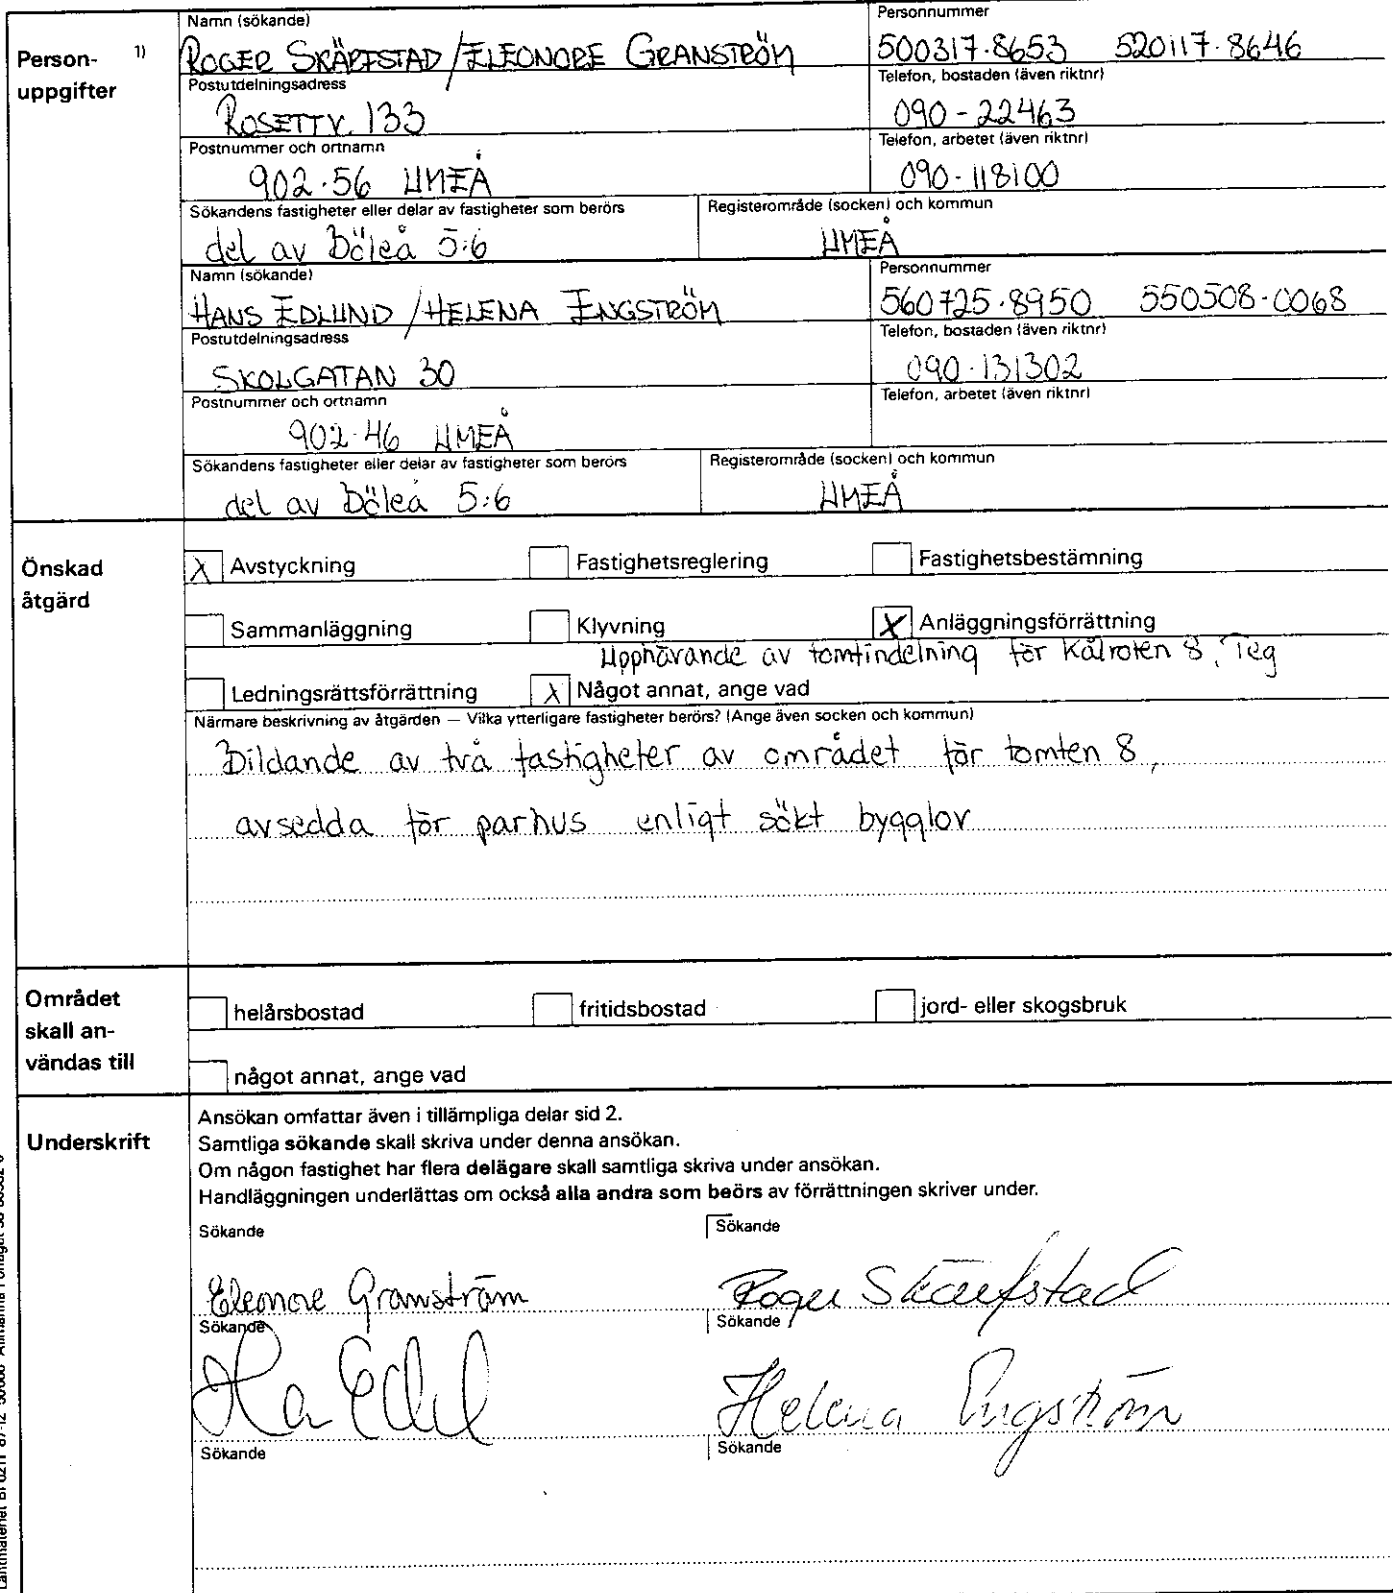 Person-
uppgifter
1)
Namn (sökande)
ROGER SKÄRFSTAD/ELEONORE GRANSTRÖM
Personnummer
500317-8653 520117-8646
Postutdelningsadress
ROSETTV. 133
Telefon, bostaden (även riktnr)
090-22463
Postnummer och ortnamn
902 56 UMEÅ
Telefon, arbetet (även riktnr)
090-118100
Sökandens fastigheter eller delar av fastigheter som berörs
del av Böleå 5:6
Registerområde (socken) och kommun
UMEÅ
Namn (sökande)
HANS EDLUND/HELENA ENGSTRÖM
Personnummer
560725-8950 550508-0068
Postutdelningsadress
SKOLGATAN 30
Telefon, bostaden (även riktnr)
090-131302
Postnummer och ortnamn
902 46 UMEÅ
Telefon, arbetet (även riktnr)
Sökandens fastigheter eller delar av fastigheter som berörs
del av Böleå 5:6
Registerområde (socken) och kommun
UMEÅ
Önskad
åtgärd
X Avstyckning Fastighetsreglering Fastighetsbestämning
Sammanläggning Klyvning X Anläggningsförrättning
Upphävande av tomtindelning för Kålroten 8, Teg
Ledningsrättsförrättning X Något annat, ange vad
Närmare beskrivning av åtgärden — Vilka ytterligare fastigheter berörs? (Ange även socken och kommun)
Bildande av två fastigheter av området för tomten 8,
avsedda för parhus enligt sökt bygglov
Området
skall an-
vändas till
helårsbostad fritidsbostad jord- eller skogsbruk
något annat, ange vad
Underskrift
Ansökan omfattar även i tillämpliga delar sid 2.
Samtliga sökande skall skriva under denna ansökan.
Om någon fastighet har flera delägare skall samtliga skriva under ansökan.
Handläggningen underlättas om också alla andra som beörs av förrättningen skriver under.
Sökande Sökande
Eleonore Granström Roger Skärfstad
Sökande Sökande
Ha Edl Helena Engström
Sökande Sökande